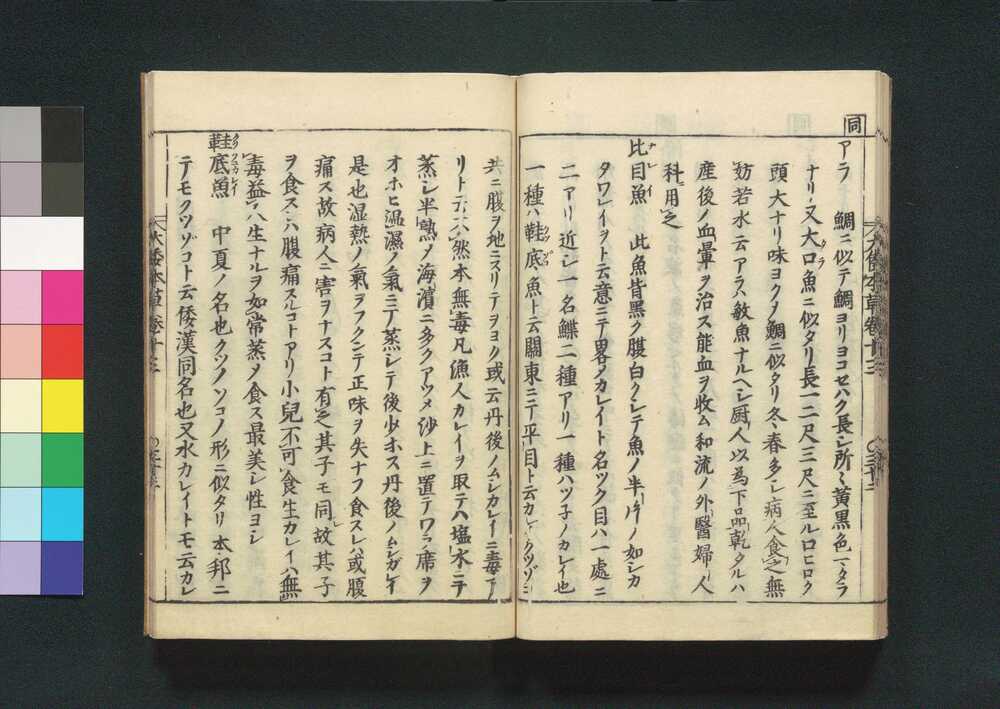 同
アラ 鯛ニ似テ鯛ヨリヨコセハク長シ所〻黄黒色ノマタラ
ナリ又大口魚ニ似タリ長一二尺三尺ニ至ル口ヒロク
頭大ナリ味ヨクメ鯛ニ似タリ冬春多シ病人食之無
妨若水云アラハ敏魚ナルヘシ厨人以為下品乾タルハ
産後ノ血暈ヲ治ス能血ヲ收ム和流ノ外醫婦人
科ニ用之
比目魚 此魚背黒ク腹白クシテ魚ノ半片ノ如シカ
タワレイヲト云意ニテ畧メカレイト名ツク目ハ一處ニ
二アリ近シ一名鰈二種アリ一種ハツ子ノカレイ也
一種ハ鞋底魚ト云關東ニテ平目ト云カレイクツゾコ
共ニ腹ヲ地ニスリテヲヨク或云丹後ノムシカレイニ毒ア
リト云ハ然本無毒凡漁人カレイヲ取テハ塩水ニテ
蒸シ半熟ノ海濱ニ多クアツメ沙上ニ置テワラ席ヲ
オホヒ温濕ノ氣ニテ蒸シテ後少ホス丹後ノムシガレイ
是也湿熱ノ氣ヲフクンテ正味ヲ失ナフ食スレハ或腹
痛ス故病人ニ害ヲナスコト有之其子モ同故其子
ヲ食スレハ腹痛スルコトアリ小兒不可食生カレイハ無
毒益人生ナルヲ如常蒸メ食ス最美シ性ヨシ
鞋底魚 中夏ノ名也クツノソコノ形ニ似タリ本邦ニ
テモクツゾコト云倭漢同名也又水カレイトモ云カレ